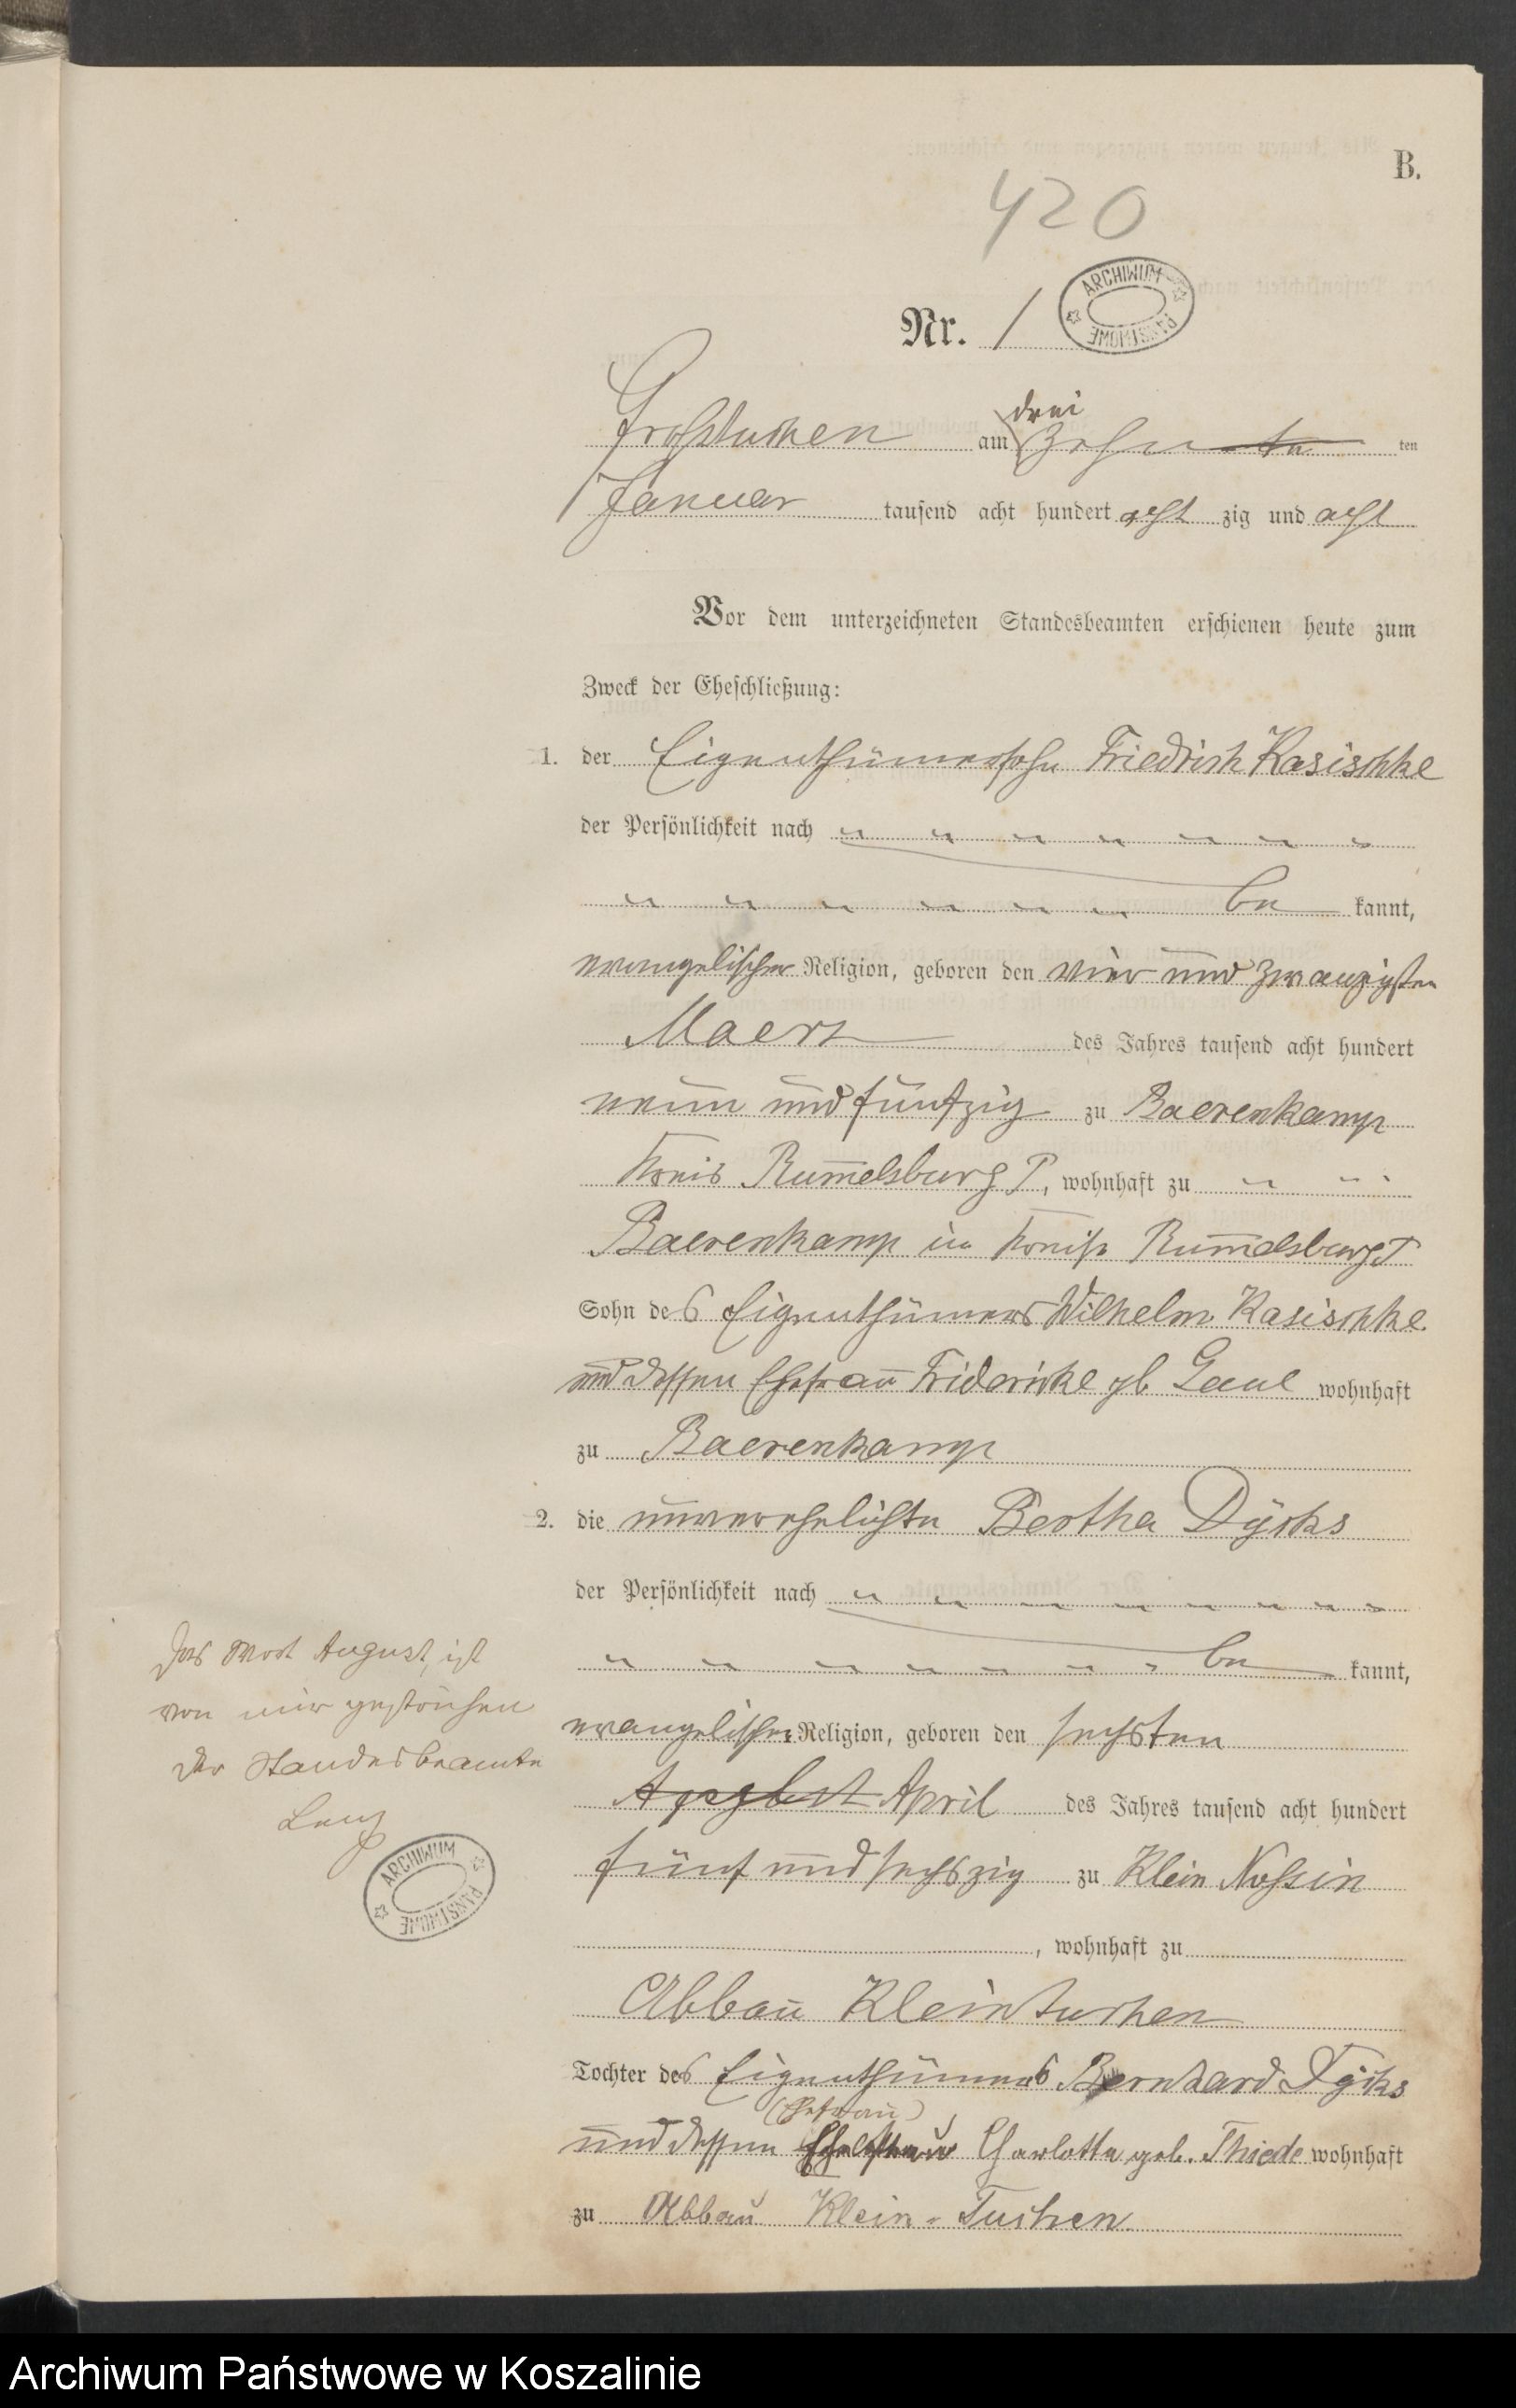 B.
420
ARCHIWUM PAŃSTWOWE
Nr. 1
Großtuchen am drei zehn ten
Januar tausend acht hundert acht zig und acht
Vor dem unterzeichneten Standesbeamten erschienen heute zum
Zweck der Eheschließung:
1. der Eigenthümersohn Friedrich Kasischke
der Persönlichkeit nach
be kannt,
evangelischer Religion, geboren den vier und zwanzigsten
Maerz des Jahres tausend acht hundert
neun und fünfzig zu Baerenkamp
Kreis Rummelsburg P, wohnhaft zu
Baerenkamp in Kreise Rummelsburg P
Sohn des Eigenthümers Wilhelm Kasischke
und dessen Ehefrau Fridericke gb. wohnhaft
zu Baerenkamp
2. die unverehelichte Bertha Dycks
der Persönlichkeit nach
be kannt,
evangelischer Religion, geboren den sechsten
August April des Jahres tausend acht hundert
fünf und sechszig zu Klein Nossin
, wohnhaft zu
Abbau Kleintuchen
Tochter des Eigenthümers Bernhard Dycks
(Ehefrau)
und dessen Charlotte geb. Thiede wohnhaft
zu Abbau Klein-Tuchen
Das Wort August, ist
von mir gestrichen
Der Standesbeamte
Lenz
ARCHIWUM PAŃSTWOWE
Archiwum Państwowe w Koszalinie